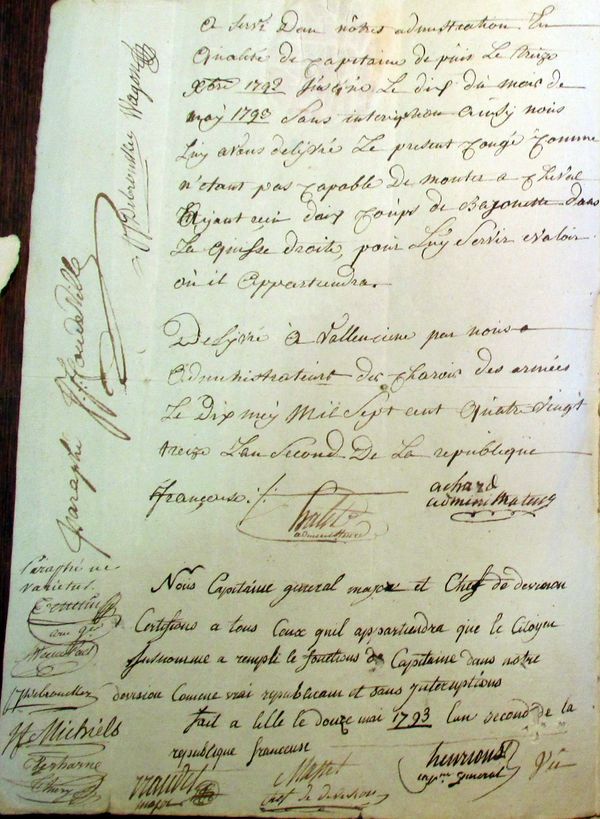 a servi Dan nôtre administration En
qualité de capitaine de puis Le treize
xbre 1792 Jusqué Le dix du mois de
may 1793 Sans interuption ainsy nous
Luy avons delivré Le present Congé Comme
n'etant pas Capable De monter a cheval
Ayant reçu deux Coups de Bajonette dans
La Cuisse droite, pour Luy Servir valoir
où il appartiendra.
Delivré à Vallencienne par nous
Administrateurs des charois des armées
Le Dix mey Mil Sept cent quatre vingt
treize L'an Second De La republique
françoise
achard
administrateur
administrateur
Nous Capitaine general major et Chef de devision
Certifions a tous Ceux quil appartiendra que le Citoyen
susnomme a remplé le fonctions de Capitaine dans notre
devision Comme vrai republicain et sans interuptions
fait a lille le douze mai 1793 lan second de la
republique franceuse
major
Mallet
chef de devision
henrion
cap.ne general
Vû
Paraphé
Wagon
Paraphé ne
varietur
Michiels
Thery